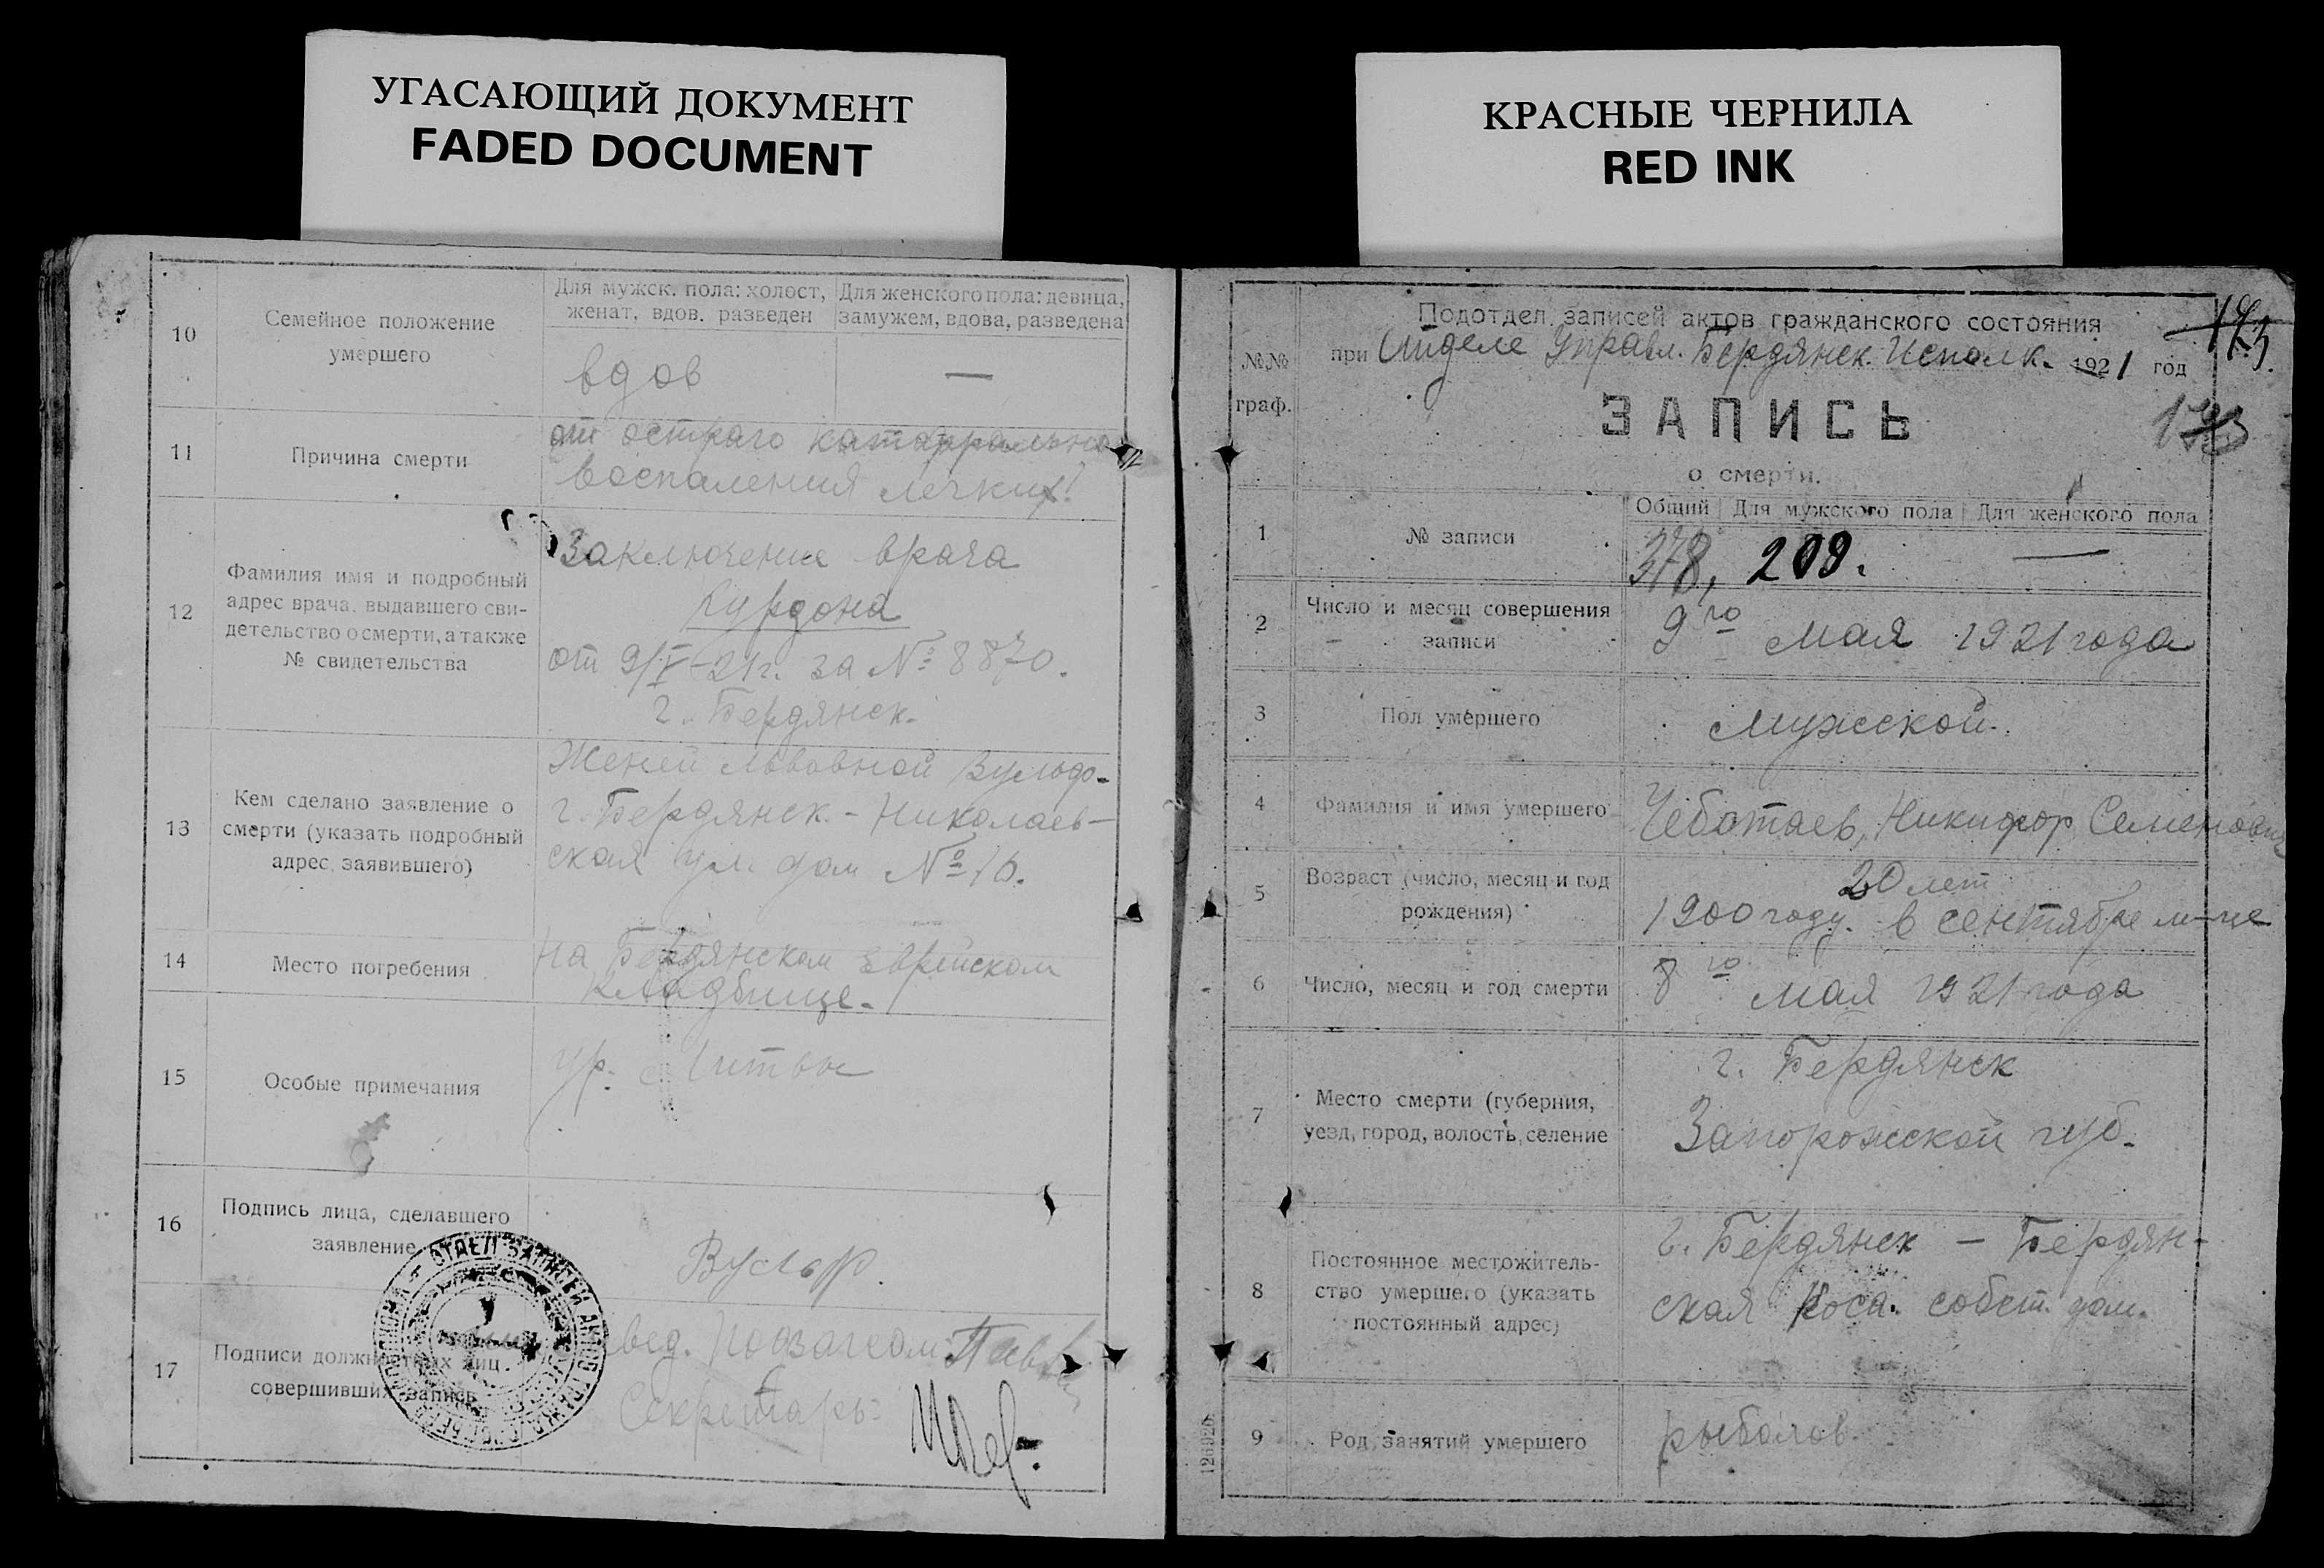 УГАСАЮЩИЙ ДОКУМЕНТ
FADED DOCUMENT
КРАСНЫЕ ЧЕРНИЛА
RED INK
10
Семейное положение
умершего
Для мужск. пола: холост,
женат, вдов. разведен
Для женского пола: девица,
замужем, вдова, разведена
вдов
—
11
Причина смерти
от остраго катаррально
воспаления легких!
12
Фамилия имя и подробный
адрес врача, выдавшего сви-
детельство о смерти, а также
№ свидетельства
Заключение врача
Кур
от 9/V-21г. за № 8870.
г. Бердянск.
13
Кем сделано заявление о
смерти (указать подробный
адрес, заявившего)
Женей Львовной Вульф-
г. Бердянск. - Николаев-
ская ул. дом № 16.
14
Место погребения
на Бердянском Еврейском
Кладбище.
15
Особые примечания
ур. Литвы
16
Подпись лица, сделавшего
заявление
Вульф.
17
Подписи должностных лиц
совершивших запись
Секретарь:
№№
граф.
Подотдел записей актов гражданского состояния
при Отделе Управл. Бердянск. Исполк. 1921 год
173
ЗАПИСЬ
о смерти.
1
№ записи
Общий
Для мужского пола
Для женского пола
378, 209. —
2
Число и месяц совершения
записи
9го мая 1921 года
3
Пол умершего
Мужской.
4
Фамилия и имя умершего
Чеботаев, Никифор Семенович
5
Возраст (число, месяц и год
рождения)
20 лет
1900 году. в сентябре м-це
6
Число, месяц и год смерти
8го мая 1921 года
7
Место смерти (губерния,
уезд, город, волость, селение
г. Бердянск
Запорожской губ.
8
Постоянное местожитель-
ство умершего (указать
постоянный адрес)
г. Бердянск — Бердян-
ская Коса. собст. дом.
9
Род занятий умершего
рыболов.